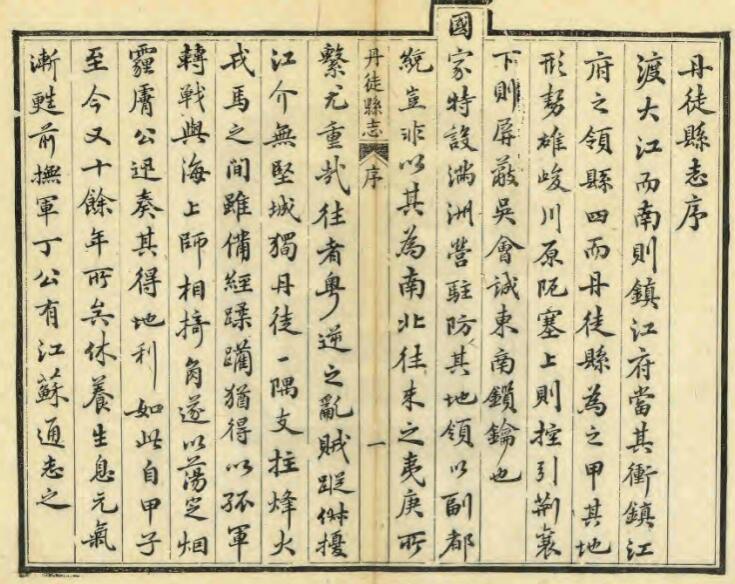 丹徒縣志序
渡大江而南則鎮江府當其衝鎮江
府之領縣四而丹徒縣為之甲其地
形勢雄峻川原阨塞上則控引荊襄
下則屏蔽吳會誠東南鎖鑰也
國家特設滿洲營駐防其地領以副都
統豈非以其為南北往來之夷庚所
丹徒縣志 序 一
繫尤重哉往者粵逆之亂賊蹤俶擾
江介無堅城獨丹徒一隅支拄烽火
戎馬之間雖備經蹂躪猶得以孤軍
轉戰與海上師相掎角遂以蕩定烟
霾膚公迅奏其得地利如此自甲子
至今又十餘年所矣休養生息元氣
漸甦前撫軍丁公有江蘇通志之